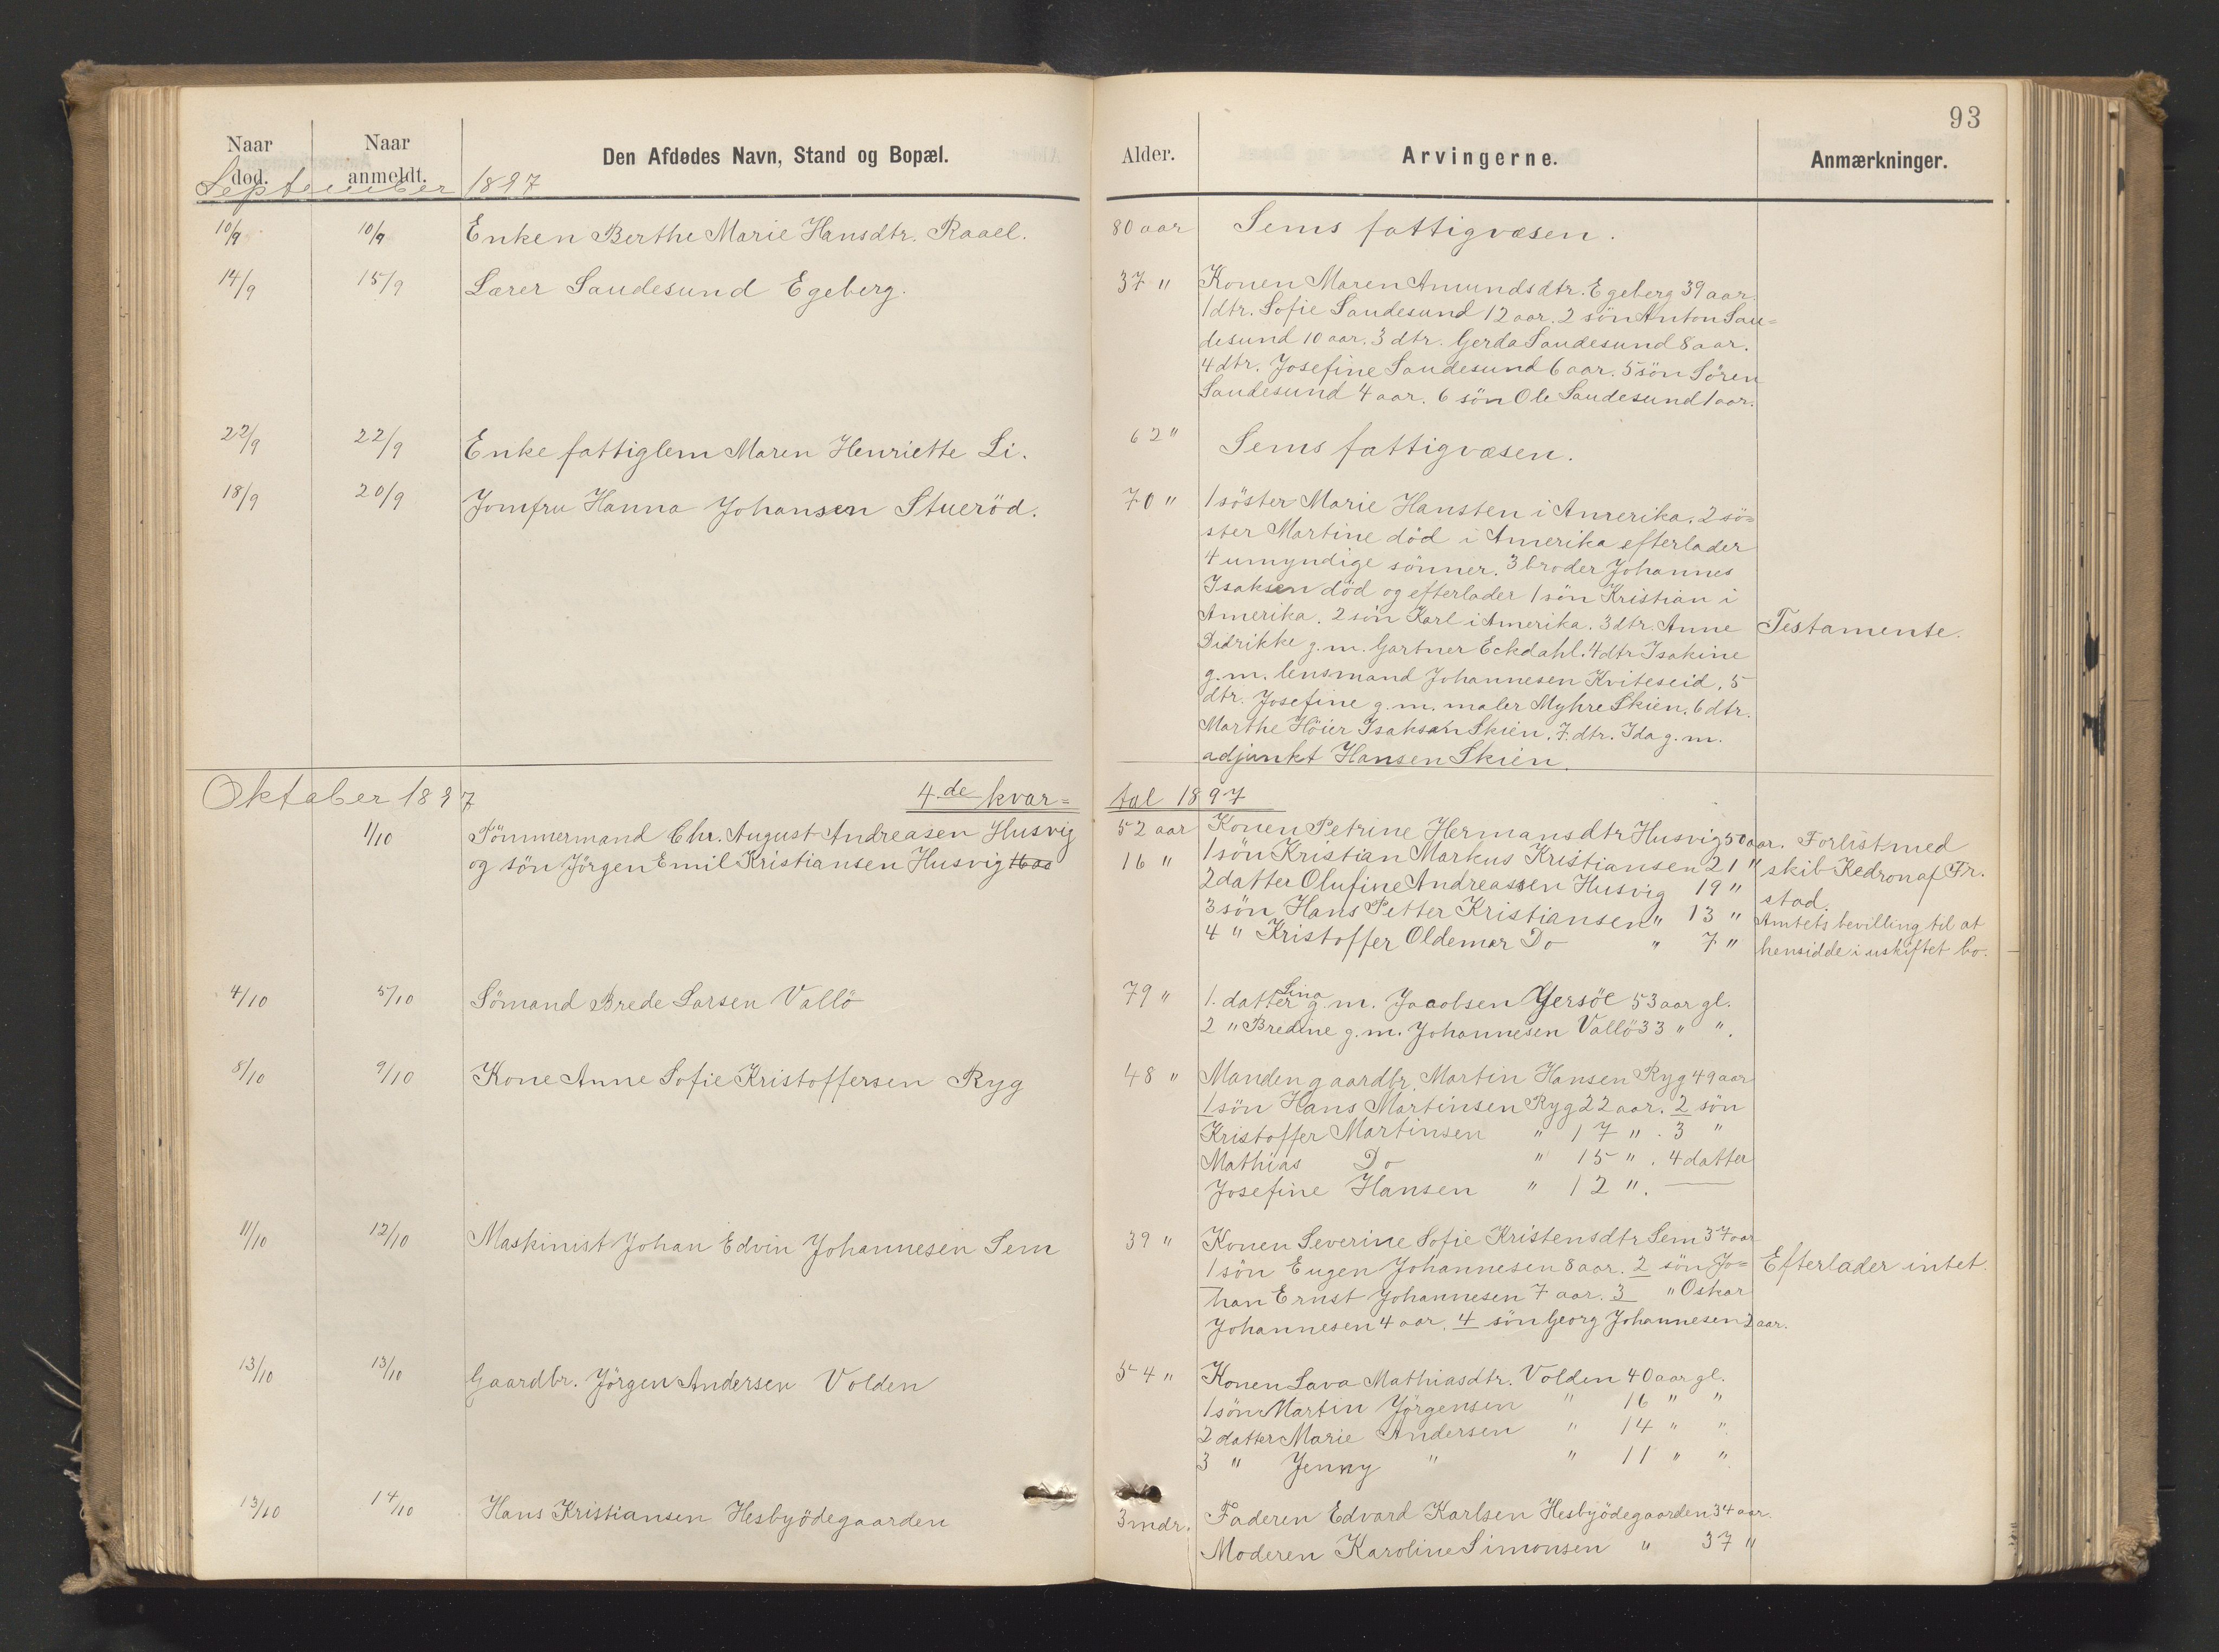 93
Naar død. Naar anmeldt. Den Afdødes Navn, Stand og Bopæl. Alder. Arvingerne. Anmærkninger.
September 1897
10/9 10/9 Enken Berthe Marie Hansdtr. Raael. 80 aar Sems fattigvæsen.
14/9 15/9 Lærer Saudesund Egeberg. 37 " Konen Maren Amundsdtr. Egeberg 39 aar.
1 dtr. Sofie Saudesund 12 aar. 2 sön Anton Sau=
desund 10 aar. 3 dtr. Gerda Saudesund 8 aar.
4 dtr. Josefine Saudesund 6 aar. 5 sön Sören
Saudesund 4 aar. 6 sön Ole Saudesund 1 aar.
22/9 22/9 Enke fattiglem Maren Henriette Li. 62 " Sems fattigvæsen.
18/9 20/9 Jomfru Hanna Johansen Stueröd. 70 " 1 söster Marie Hansten i Amerika. 2 sö=
ster Martine död i Amerika efterlader
4 umyndige sönner. 3 broder Johannes
Isaksen död og efterlader 1 sön Kristian i
Amerika. 2 sön Karl i Amerika. 3 dtr. Anne Testamente.
Didrikke g.m. Gartner Eckdahl. 4 dtr Isakine
g.m. lensmand Johannesen Kviteseid, 5
dtr. Josefine g.m. maler Myhre Skien. 6 dtr.
Marthe Höier Isaksen Skien. 7. dtr. Ida g.m.
adjunkt Hansen Skien.
Oktober 1897 4de kvar= tal 1897
1/10 Tömmermand Chr. August Andreasen Husvig 52 aar Konen Petrine Hermansdtr Husvig 50 aar. Forlist med
og sön Jörgen Emil Kristiansen Husvig 16 aa 16 " 1 sön Kristian Markus Kristiansen 21 " skib Kedron af Fr.
2 datter Olufine Andreassen Husvig 19 " stad.
3 sön Hans Petter Kristiansen " 13 " Amtets bevilling til at
4 " Kristoffer Oldemar Do " 7 " hensidde i uskiftet bo.
4/10 5/10 Sömand Brede Larsen Vallö 79 " 1. datter Lina g.m. Jacobsen Yersöe 53 aar gl.
2 " Bredine g.m. Johannesen Vallö 33 " ".
8/10 9/10 Kone Anne Sofie Kristoffersen Ryg 48 " Manden gaardbr. Martin Hansen Ryg 49 aar
1 sön Hans Martinsen Ryg 22 aar. 2 sön
Kristoffer Martinsen " 17 ". 3 "
Mathias Do " 15 ". 4 datter
Josefine Hansen " 12 ".
11/10 12/10 Maskinist Johan Edvin Johannesen Sem 39 " Konen Severine Sofie Kristensdtr Sem 37 aar
1 sön Eugen Johannesen 8 aar. 2 sön Jo= Efterlader intet.
han Ernst Johannesen 7 aar. 3 " Oskar
Johannesen 4 aar. 4 sön Georg Johannesen 2 aar.
13/10 13/10 Gaardbr. Jörgen Andersen Volden 54 " Konen Lava Mathiasdtr. Volden 40 aar gl.
1 sön Martin Jörgensen " 16 " "
2 datter Marie Andersen " 14 " "
3 " Jenny " " 11 " "
13/10 14/10 Hans Kristiansen Hesbyödegaarden 3 mdr. Faderen Edvard Karlsen Hesbyödegaarden 34 aar.
Moderen Karoline Simonsen " 37 "